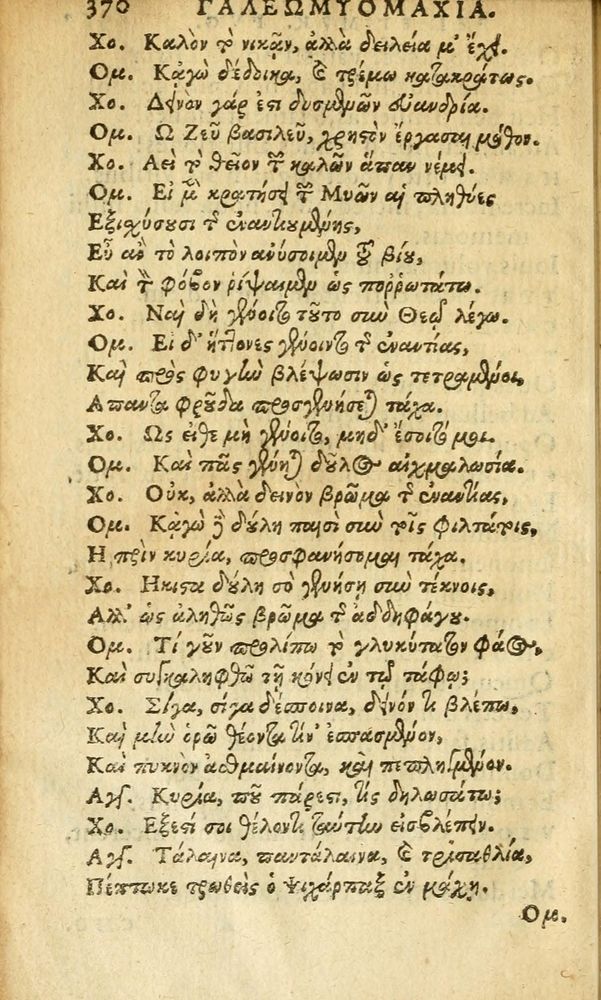 370 ΓΑΛΕΩΜΥΟΜΑΧΙΑ.
Χο. Καλὸν τὸ νικᾶν, ἀλλὰ δειλεία μ' ἔχει.
Ομ. Κἀγὼ δέδοικα, καὶ τρέμω κατακράτως.
Χο. Δεινὸν γάρ ἐστι δυσμενῶν εὐανδρία.
Ομ. Ω Ζεῦ βασιλεῦ, χρηστὸν ἔργασαι μόθον.
Χο. Αεὶ τὸ θεῖον τῶν καλῶν ἅπαν νέμει.
Ομ. Εἰ μὲν κρατήσει τῶν Μυῶν αἱ πληθύες
Εξισχύσουσι τῆς ἐναντιουμένης,
Εὖ ἂν τὸ λοιπὸν ἀνύσοιμεν τοῦ βίου,
Καὶ τὸν φόβον ῥίψαιμεν ὡς ποῤῥωτάτω.
Χο. Ναὶ δὴ γένοιτο τοῦτο σὺν Θεῷ λέγω.
Ομ. Εἰ δ' ἥττονες γένοιντο τῆς ἐναντίας,
Καὶ πρὸς φυγὴν βλέψωσιν ὡς τετραμμένοι,
Απαντα φροῦδα προσγενήσεται τάχα.
Χο. Ως εἴθε μὴ γένοιτο, μηδ' ἔσοιτό μοι.
Ομ. Καὶ πᾶς γένηται δοῦλος αἰχμαλωσία.
Χο. Οὐκ, ἀλλὰ δεινὸν βρῶμα τῆς ἐναντίας,
Ομ. Κἀγὼ δὲ δούλη παισὶ σὺν τοῖς φιλτάτοις,
Η πρὶν κυρία, προσφανήσομαι τάχα.
Χο. Ηκιστα δούλη σὸ γενήση σὺν τέκνοις,
Αλλ' ὡς ἀληθῶς βρῶμα τῆς ἀδδηφάγου.
Ομ. Τί γοῦν προλίπω τὸ γλυκύτατον φάος,
Καὶ συγκαληφθῶ τῇ κόνει ἐν τῷ τάφῳ;
Χο. Σίγα, σίγα δέσποινα, δεινόν τι βλέπω,
Καὶ μὴν ὁρῶ θέοντα τίν' ἐσπασμένον,
Καὶ πυκνὸν ἀσθμαίνοντα, καὶ πεπλησμένον.
Αγγ. Κυρία, ποῦ πάρεστι, τὶς δηλωσάτω;
Χο. Εξεστί σοι θέλοντι ταύτην εἰσβλέπειν.
Αγγ. Τάλαινα, παντάλαινα, καὶ τρισαθλία,
Πέπτωκε τρωθεὶς ὁ Ψιχάρπαξ ἐν μάχῃ.
Ομ.